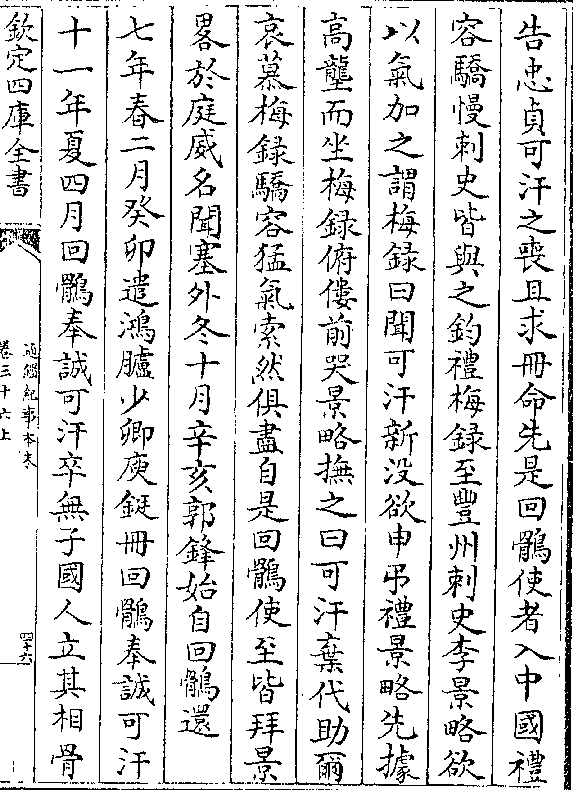 告忠貞可汗之喪且求冊命先是回鶻使者入中國禮
容驕慢刺史皆與之鈞禮梅録至豐州刺史李景略欲
以氣加之謂梅録曰聞可汗新没欲申弔禮景略先據
高壟而坐梅録俯僂前哭景略撫之曰可汗棄代助爾
哀慕梅録驕容猛氣索然俱盡自是回鶻使至皆拜景
畧於庭威名聞塞外冬十月辛亥郭鋒始自回鶻還
七年春二月癸卯遣鴻臚少卿庾鋋冊回鶻奉誠可汗
十一年夏四月回鶻奉誠可汗卒無子國人立其相骨
欽定四庫全書
通鑑紀事本末
卷三十六上
四十六